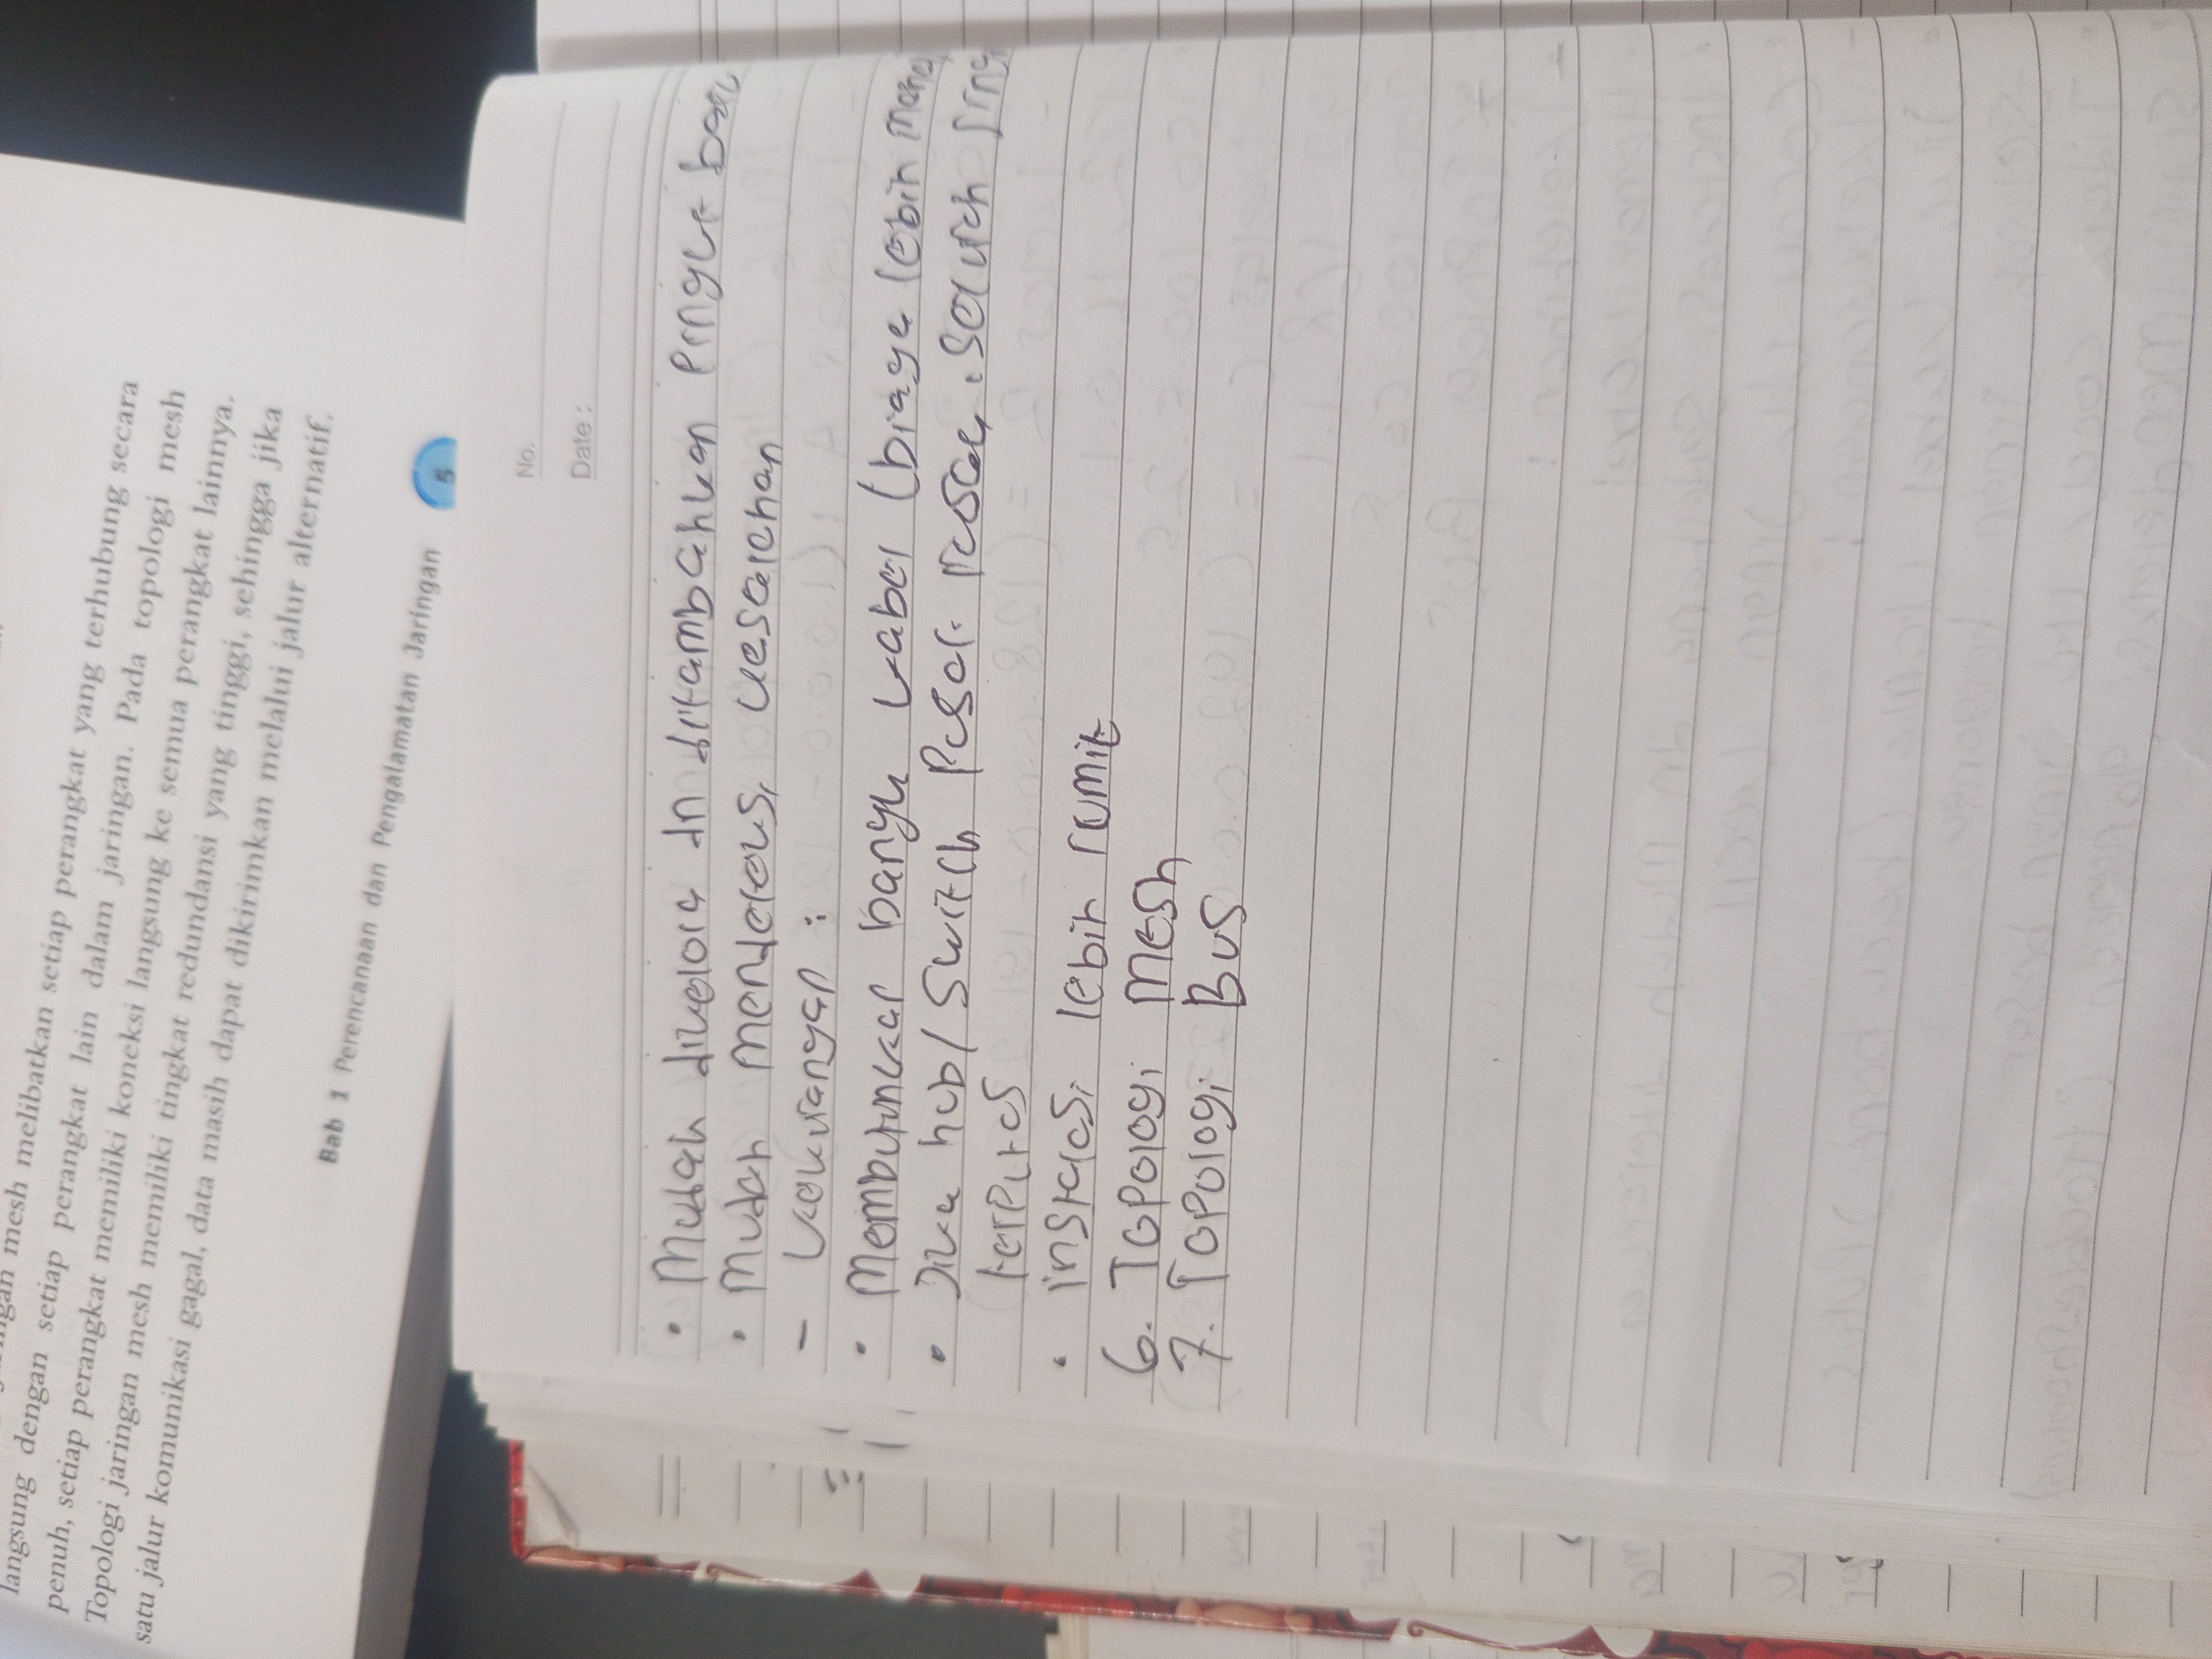 jaringan mesh melibatkan setiap perangkat yang terhubung secara
langsung dengan setiap perangkat lain dalam jaringan. Pada topologi mesh
penuh, setiap perangkat memiliki koneksi langsung ke semua perangkat lainnya.
Topologi jaringan mesh memiliki tingkat redundansi yang tinggi, sehingga jika
satu jalur komunikasi gagal, data masih dapat dikirimkan melalui jalur alternatif.
Bab 1 Perencanaan dan Pengalamatan Jaringan 5
No.
Date :
• Mudah dikelola dn ditambahkan baru
• Mudah mendeteksi kesalahan
- Kekurangan :
• Membutuhkan kabel (biaya lebih
• Jika hub/Switch Pusat rusak, seluruh
terputus
• instalasi lebih rumit
6. Topologi Mesh
7. Topologi Bus